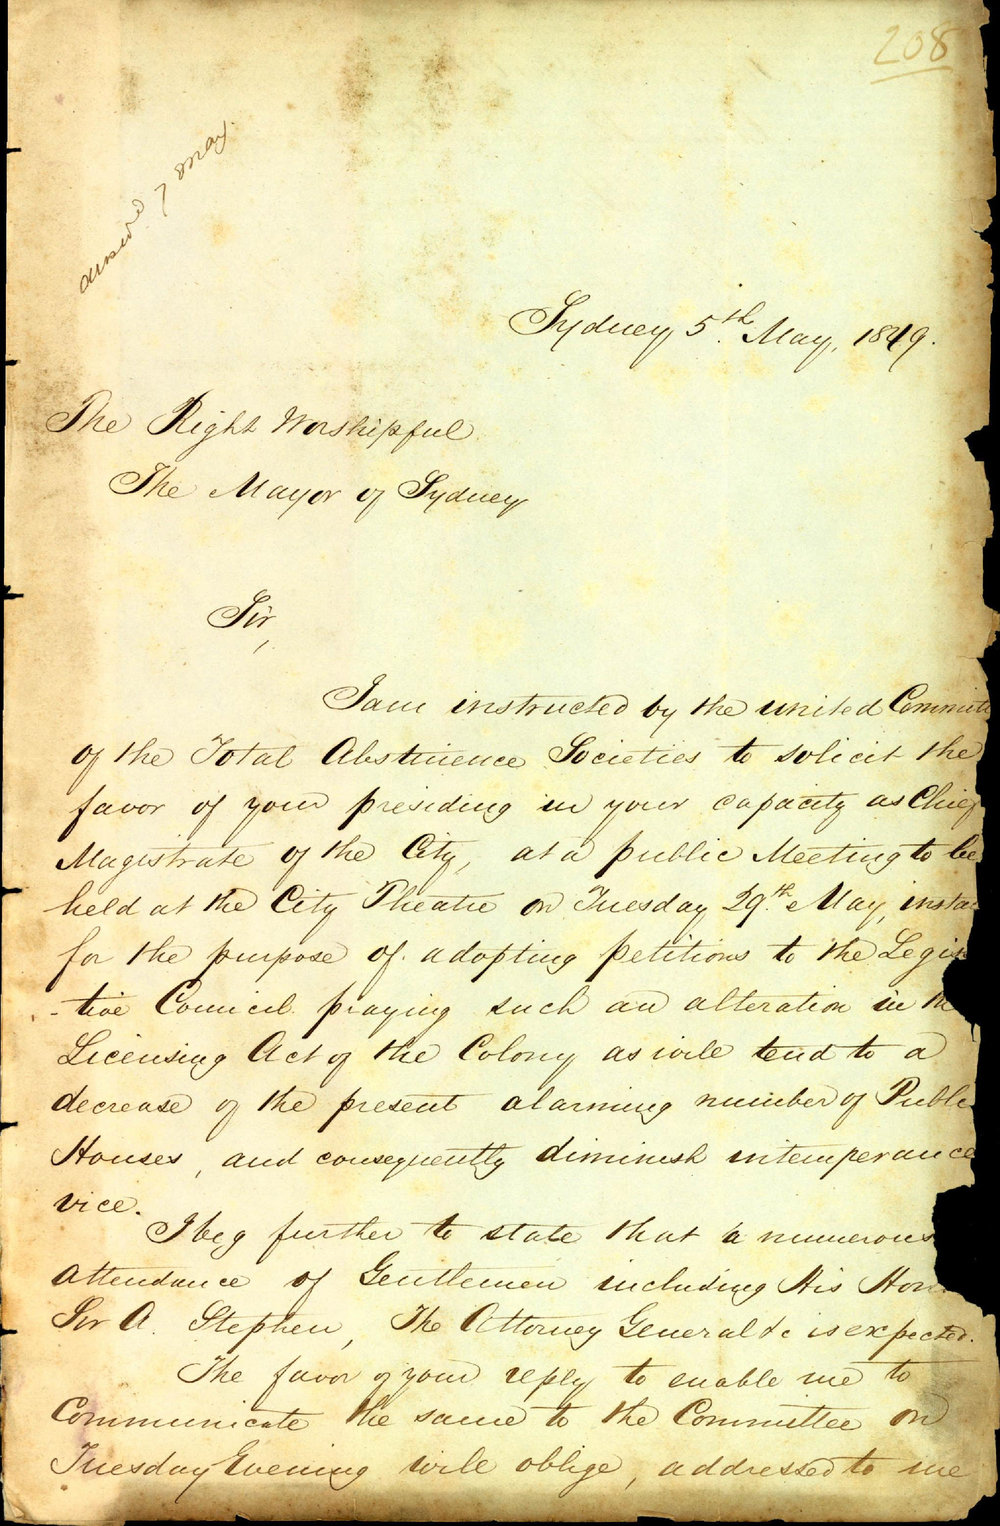 208
answd 7 May.
Sydney 5th May, 1849.
The Right Worshipful
The Mayor of Sydney
Sir,
I am instructed by the united Committe
of the Total Abstinence Societies to solicit the
favor of your presiding in your capacity as Chief
Magistrate of the City, at a public Meeting to be
held at the City Theatre on Tuesday 29th May, insta
for the purpose of adopting petitions to the Legis
-tive Council praying such an alteration in the
Licensing Act of the Colony as will tend to a
decrease of the present alarming number of Public
Houses, and consequently diminish intemperance
vice.
I beg further to state that a numerous
attendance of Gentlemen including His Hon
Sir A. Stephen, The Attorney General &c is expected.
The favor of your reply to enable me to
Communicate the same to the Committee on
Tuesday Evening will oblige, addressed to me